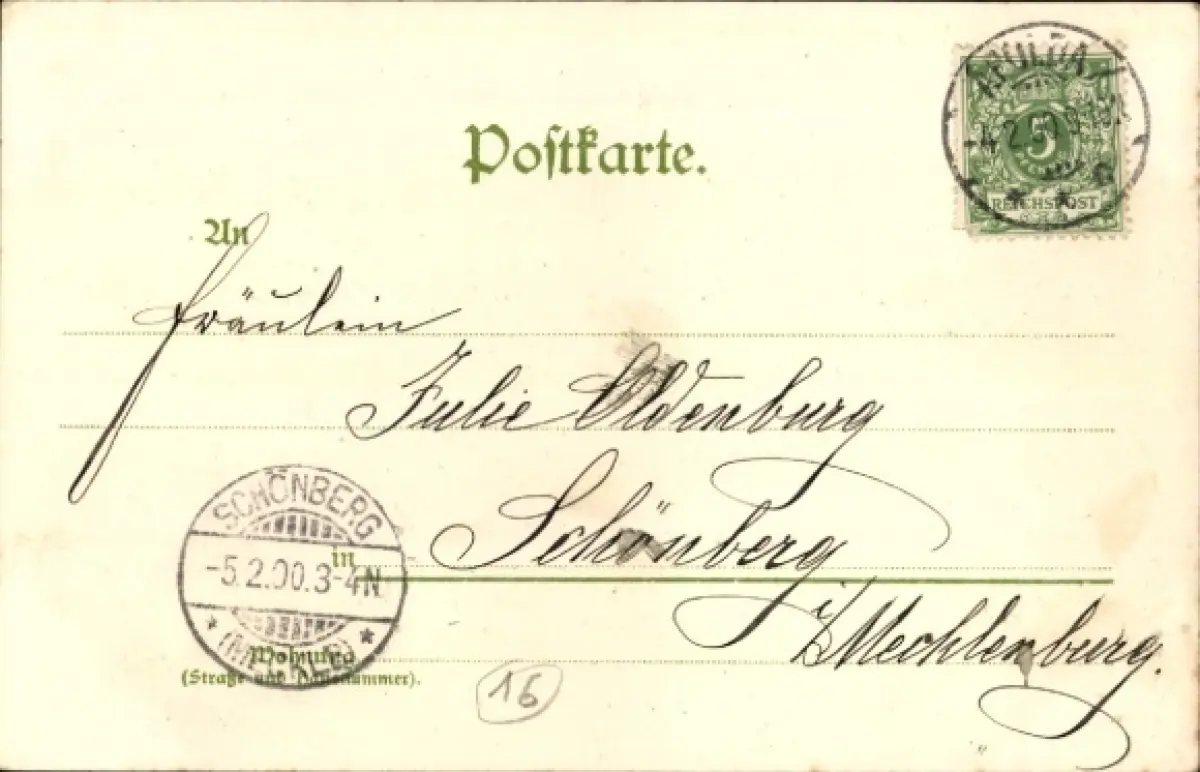 Postkarte.
APOLDA
-4.2.00
5
REICHSPOST
An
Fräulein
Julie Oldenburg
Schönberg
in
i/Mecklenburg.
SCHÖNBERG
-5.2.00.3-4N
Wohnung
(Straße und Hausnummer).
16